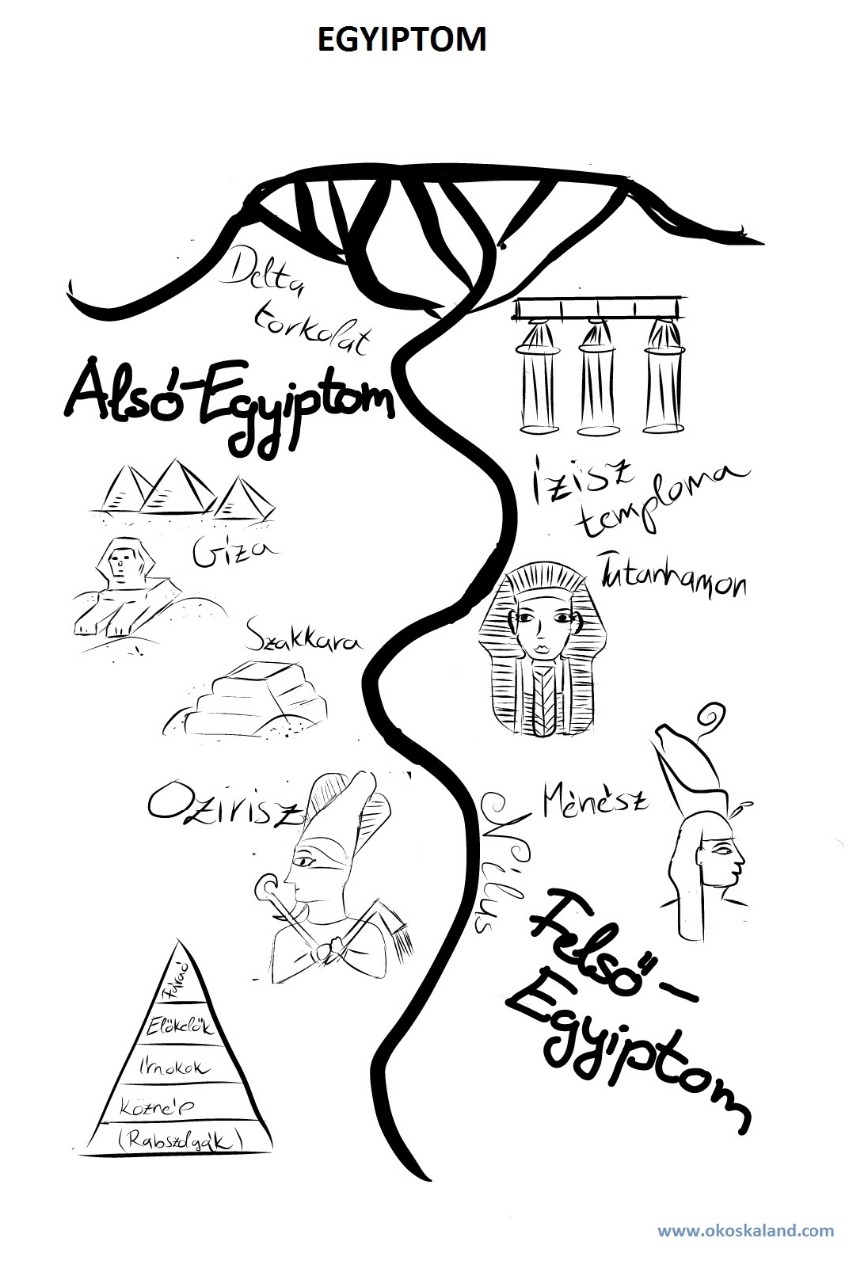 EGYIPTOM
Delta
torkolat
Alsó-Egyiptom
Ízisz
temploma
Gíza
Tutanhamon
Szakkara
Ozirisz
Ménész
Nílus
Felső-
Egyiptom
Fáraó
Előkelők
Írnokok
Köznép
(Rabszolgák)
www.okoskaland.com